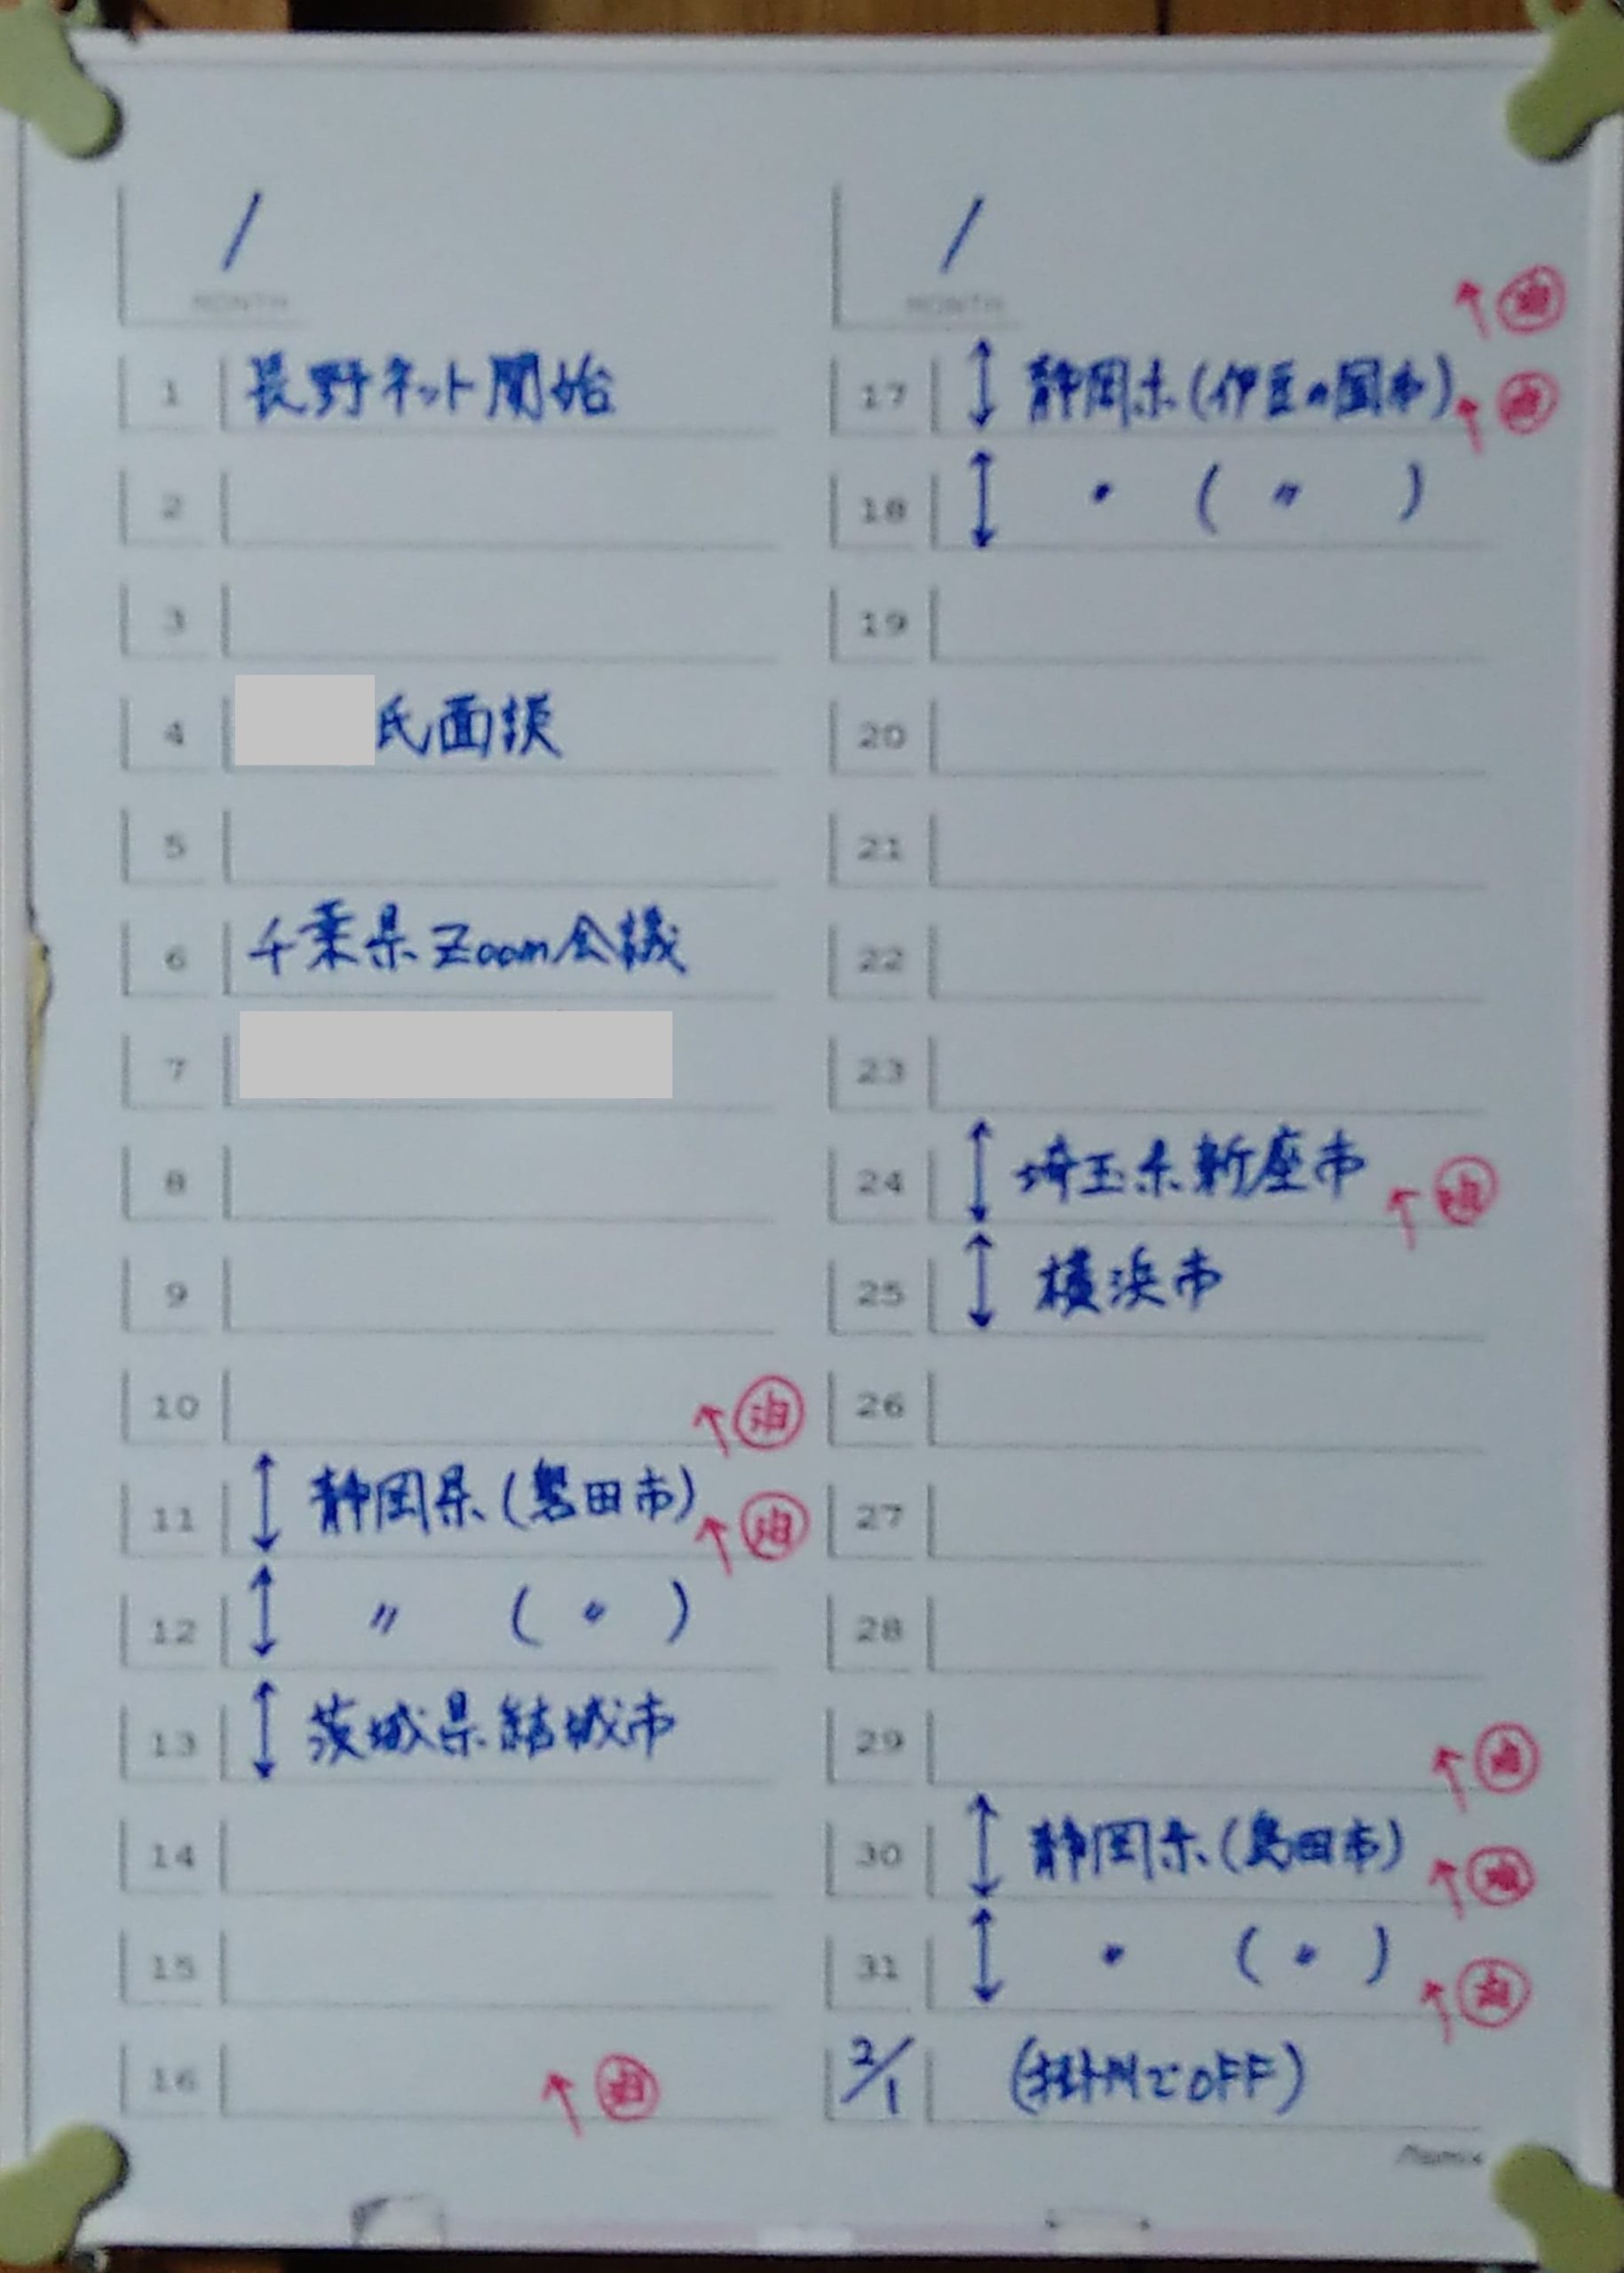 1
MONTH
1 長野ネット開始
2
3
4 氏面談
5
6 千葉県Zoom会議
7
8
9
10 ↑泊
11 ↕ 静岡県(磐田市) ↑泊
12 ↕ 〃 ( 〃 )
13 ↕ 茨城県結城市
14
15
16 ↑泊
1
MONTH
↑泊
17 ↕ 静岡県(伊豆の国市) ↑泊
18 ↕ 〃 ( 〃 )
19
20
21
22
23
24 ↕ 埼玉県新座市 ↑泊
25 ↕ 横浜市
26
27
28
29 ↑泊
30 ↕ 静岡県(島田市) ↑泊
31 ↕ 〃 ( 〃 ) ↑泊
2/1 (掛川でOFF)